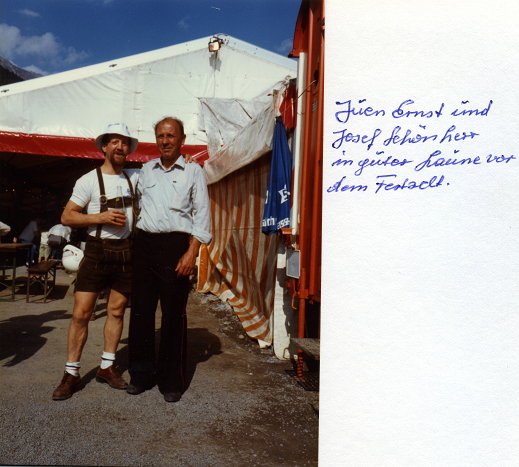 Jüen Ernst und
Josef Schönherr
in guter Laune vor
dem Festzelt.